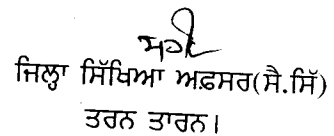 ਸਹੀ/
ਜਿਲ੍ਹਾ ਸਿੱਖਿਆ ਅਫ਼ਸਰ(ਸੈ.ਸਿੱ)
ਤਰਨ ਤਾਰਨ।